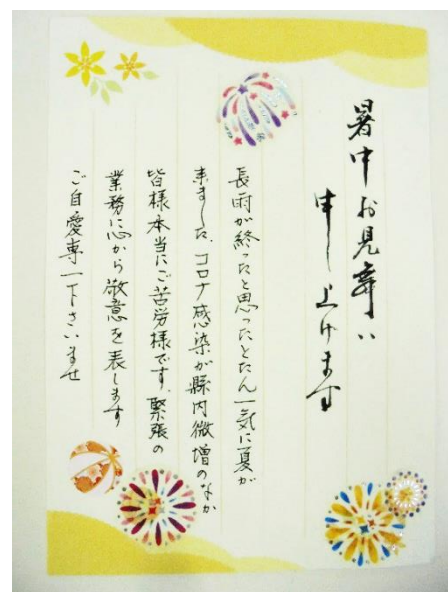 暑中お見舞い
申し上げます
長雨が終ったと思ったとたん一気に夏が
来ました、コロナ感染が県内微増のなか
皆様本当にご苦労様です、緊張の
業務に心から敬意を表します
ご自愛専一下さいませ